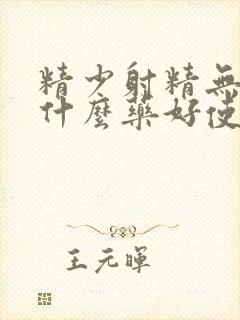 精少射精無
什麼藥好使
王元暉